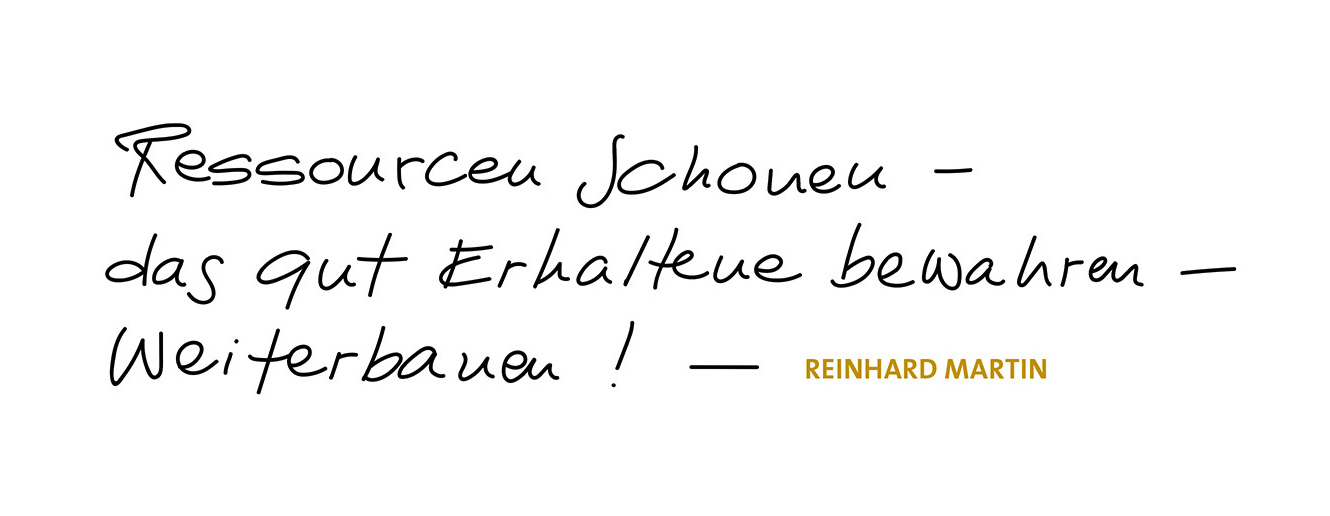 Ressourcen schonen –
das gut Erhaltene bewahren –
Weiterbauen ! — REINHARD MARTIN